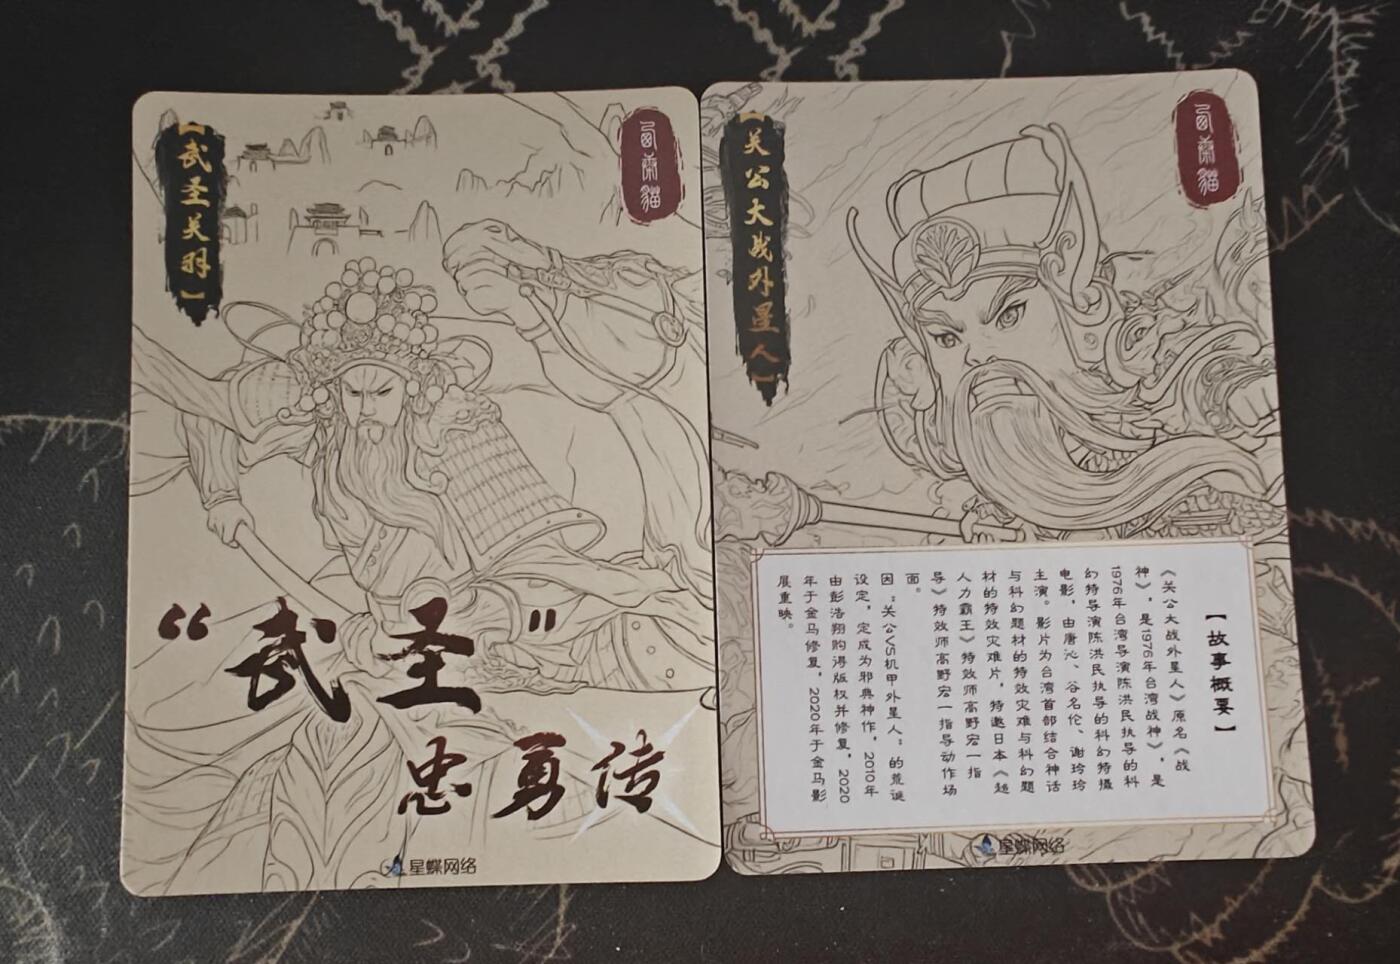 【武圣关羽】
“武圣”
忠勇传
星蝶网络
【关公大战外星人】
【故事概要】
《关公大战外星人》原名《战
神》，是1976年台湾战神》，是
1976年台湾导演陈洪民执导的科
幻特导演陈洪民执导的科幻特摄
电影，由唐沁、谷名伦、谢玲玲
主演。影片为台湾首部结合神话
与科幻题材的特效灾难与科幻题
材的特效灾难片，特邀日本《超
人力霸王》特效师高野宏一指
导》特效师高野宏一指导动作场
面。
因“关公VS机甲外星人”的荒诞
设定，定成为邪典神作，2010年
由彭浩翔购得版权并修复，2020
年于金马修复，2020年于金马影
展重映。
星蝶网络